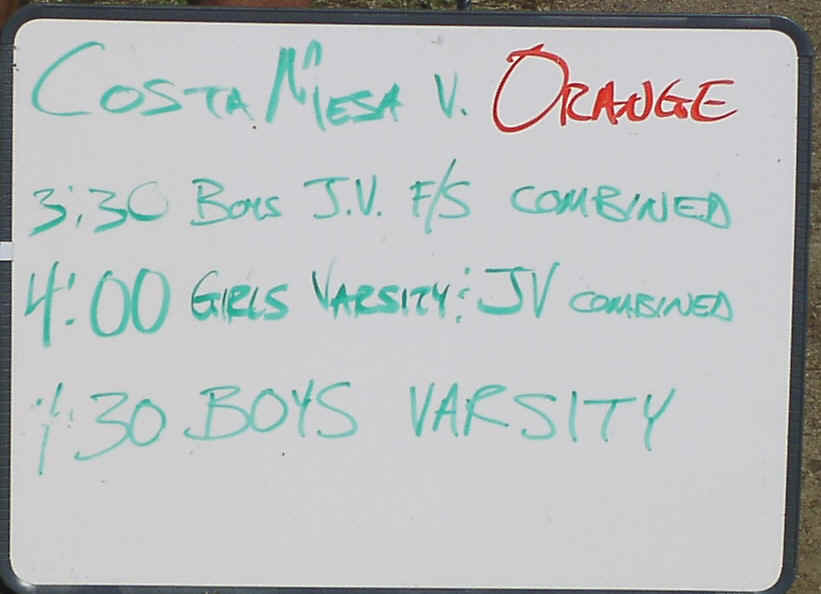 COSTA MESA V. ORANGE
3:30 BOYS J.V. F/S COMBINED
4:00 GIRLS VARSITY : JV COMBINED
:30 BOYS VARSITY